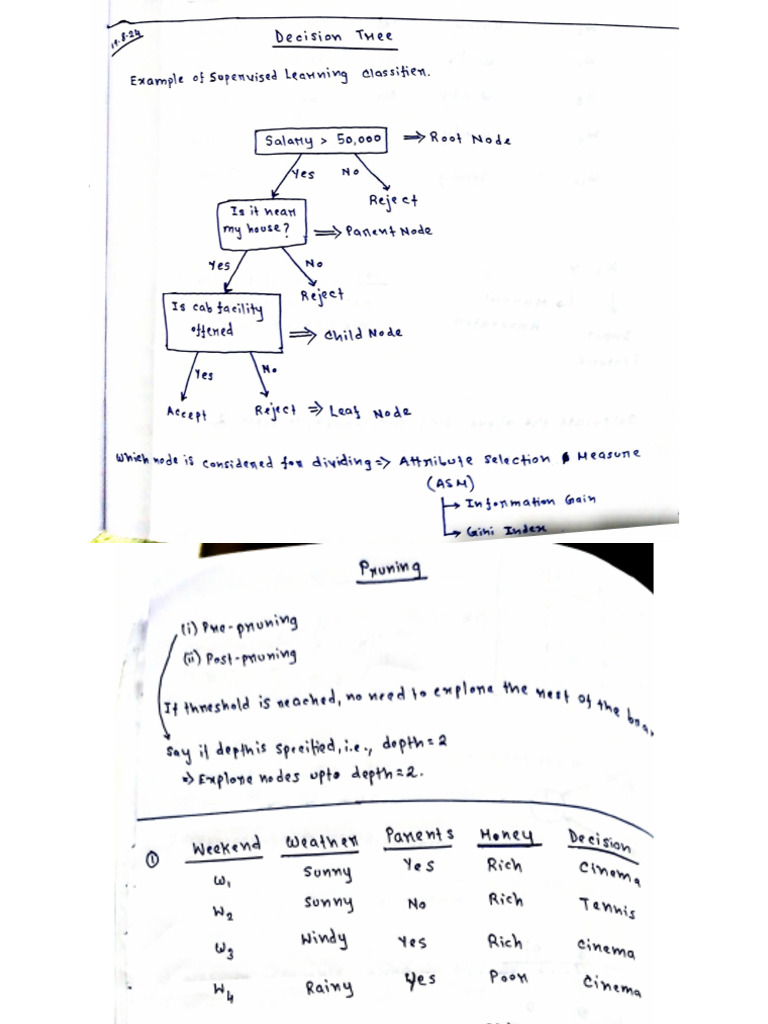 19.8.24
Decision Tree
Example of Supervised Learning Classifier.
Salary > 50,000 ⇒ Root Node
Yes No
Reject
Is it near
my house? ⇒ Parent Node
Yes No
Reject
Is cab facility
offered ⇒ Child Node
Yes No
Accept Reject ⇒ Leaf Node
Which node is considered for dividing ⇒ Attribute Selection Measure
(ASM)
→ Information Gain
→ Gini Index
Pruning
(i) Pre-pruning
(ii) Post-pruning
If threshold is reached, no need to explore the rest of the
Say if depth is specified, i.e., depth = 2
⇒ Explore nodes upto depth = 2.
① Weekend Weather Parents Money Decision
W1 Sunny Yes Rich Cinema
W2 Sunny No Rich Tennis
W3 Windy Yes Rich Cinema
W4 Rainy Yes Poor Cinema